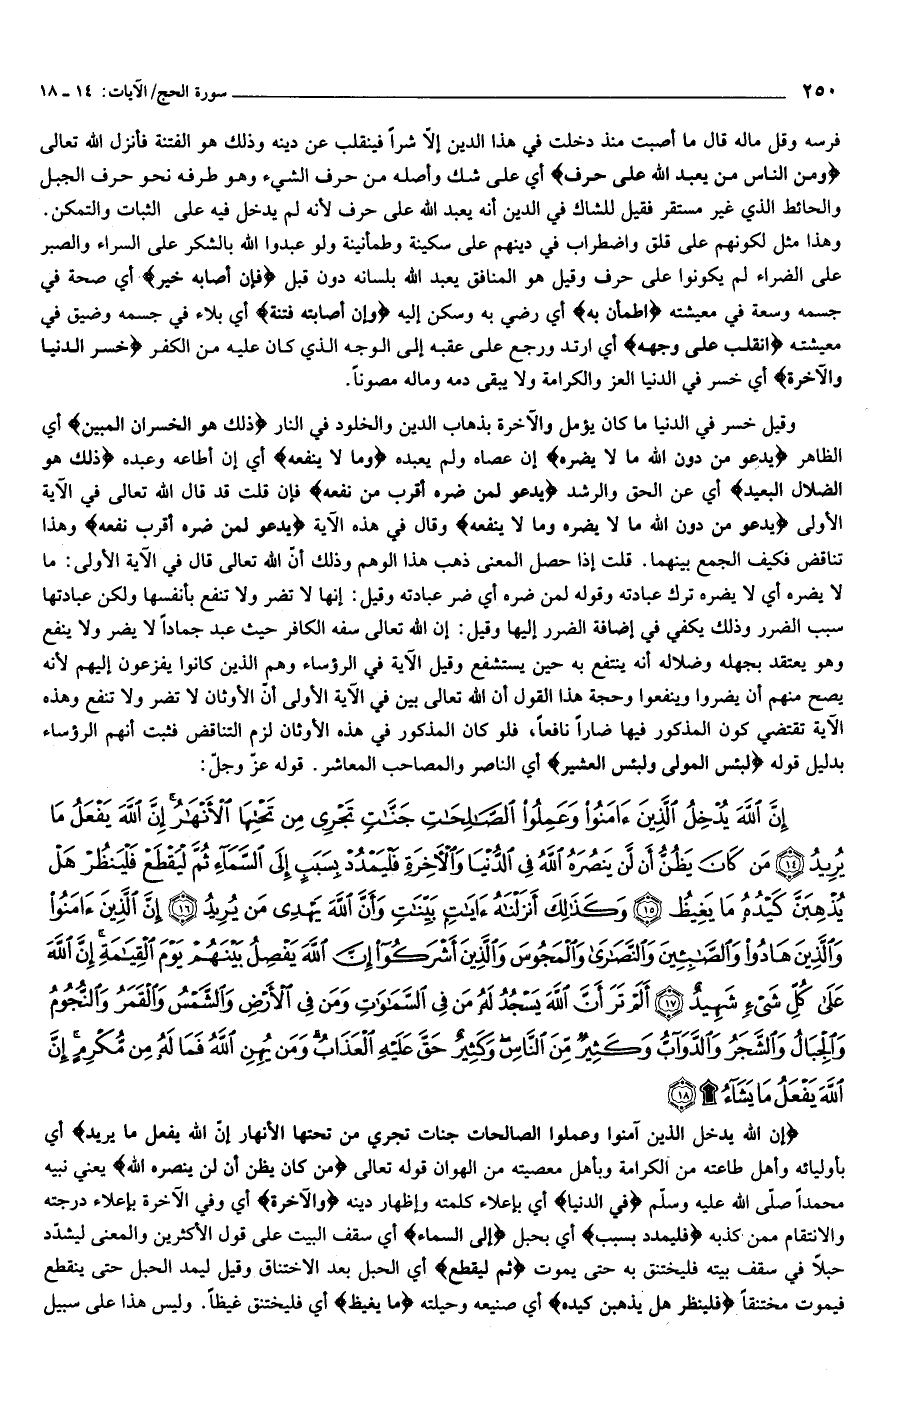 ٢٥٠ سورة الحج/ الآيات: ١٤ ـ ١٨
فرسه وقل ماله قال ما أصبت منذ دخلت في هذا الدين إلاّ شراً فينقلب عن دينه وذلك هو الفتنة فأنزل الله تعالى
﴿ومن الناس من يعبد الله على حرف﴾ أي على شك وأصله من حرف الشيء وهو طرفه نحو حرف الجبل
والحائط الذي غير مستقر فقيل للشاك في الدين أنه يعبد الله على حرف لأنه لم يدخل فيه على الثبات والتمكن.
وهذا مثل لكونهم على قلق واضطراب في دينهم على سكينة وطمأنينة ولو عبدوا الله بالشكر على السراء والصبر
على الضراء لم يكونوا على حرف وقيل هو المنافق يعبد الله بلسانه دون قبل ﴿فإن أصابه خير﴾ أي صحة في
جسمه وسعة في معيشته ﴿اطمأن به﴾ أي رضي به وسكن إليه ﴿وإن أصابته فتنة﴾ أي بلاء في جسمه وضيق في
معيشته ﴿انقلب على وجهه﴾ أي ارتد ورجع على عقبه إلى الوجه الذي كان عليه من الكفر ﴿خسر الدنيا
والآخرة﴾ أي خسر في الدنيا العز والكرامة ولا يبقى دمه وماله مصوناً.
وقيل خسر في الدنيا ما كان يؤمل والآخرة بذهاب الدين والخلود في النار ﴿ذلك هو الخسران المبين﴾ أي
الظاهر ﴿يدعو من دون الله ما لا يضره﴾ إن عصاه ولم يعبده ﴿وما لا ينفعه﴾ أي إن أطاعه وعبده ﴿ذلك هو
الضلال البعيد﴾ أي عن الحق والرشد ﴿يدعو لمن ضره أقرب من نفعه﴾ فإن قلت قد قال الله تعالى في الآية
الأولى ﴿يدعو من دون الله ما لا يضره وما لا ينفعه﴾ وقال في هذه الآية ﴿يدعو لمن ضره أقرب نفعه﴾ وهذا
تناقض فكيف الجمع بينهما. قلت إذا حصل المعنى ذهب هذا الوهم وذلك أنّ الله تعالى قال في الآية الأولى: ما
لا يضره أي لا يضره ترك عبادته وقوله لمن ضره أي ضر عبادته وقيل: إنها لا تضر ولا تنفع بأنفسها ولكن عبادتها
سبب الضرر وذلك يكفي في إضافة الضرر إليها وقيل: إن الله تعالى سفه الكافر حيث عبد جماداً لا يضر ولا ينفع
وهو يعتقد بجهله وضلاله أنه ينتفع به حين يستشفع وقيل الآية في الرؤساء وهم الذين كانوا يفزعون إليهم لأنه
يصح منهم أن يضروا وينفعوا وحجة هذا القول أن الله تعالى بين في الآية الأولى أنّ الأوثان لا تضر ولا تنفع وهذه
الآية تقتضي كون المذكور فيها ضاراً نافعاً، فلو كان المذكور في هذه الأوثان لزم التناقض فثبت أنهم الرؤساء
بدليل قوله ﴿لبئس المولى ولبئس العشير﴾ أي الناصر والمصاحب المعاشر. قوله عزّ وجلّ:
إِنَّ ٱللَّهَ يُدْخِلُ ٱلَّذِينَ ءَامَنُوا۟ وَعَمِلُوا۟ ٱلصَّـٰلِحَـٰتِ جَنَّـٰتٍ تَجْرِى مِن تَحْتِهَا ٱلْأَنْهَـٰرُ ۚ إِنَّ ٱللَّهَ يَفْعَلُ مَا
يُرِيدُ ﴿١٤﴾ مَن كَانَ يَظُنُّ أَن لَّن يَنصُرَهُ ٱللَّهُ فِى ٱلدُّنْيَا وَٱلْـَٔاخِرَةِ فَلْيَمْدُدْ بِسَبَبٍ إِلَى ٱلسَّمَآءِ ثُمَّ لْيَقْطَعْ فَلْيَنظُرْ هَلْ
يُذْهِبَنَّ كَيْدُهُۥ مَا يَغِيظُ ﴿١٥﴾ وَكَذَٰلِكَ أَنزَلْنَـٰهُ ءَايَـٰتٍۭ بَيِّنَـٰتٍ وَأَنَّ ٱللَّهَ يَهْدِى مَن يُرِيدُ ﴿١٦﴾ إِنَّ ٱلَّذِينَ ءَامَنُوا۟
وَٱلَّذِينَ هَادُوا۟ وَٱلصَّـٰبِـِٔينَ وَٱلنَّصَـٰرَىٰ وَٱلْمَجُوسَ وَٱلَّذِينَ أَشْرَكُوٓا۟ إِنَّ ٱللَّهَ يَفْصِلُ بَيْنَهُمْ يَوْمَ ٱلْقِيَـٰمَةِ ۚ إِنَّ ٱللَّهَ
عَلَىٰ كُلِّ شَىْءٍ شَهِيدٌ ﴿١٧﴾ أَلَمْ تَرَ أَنَّ ٱللَّهَ يَسْجُدُ لَهُۥ مَن فِى ٱلسَّمَـٰوَٰتِ وَمَن فِى ٱلْأَرْضِ وَٱلشَّمْسُ وَٱلْقَمَرُ وَٱلنُّجُومُ
وَٱلْجِبَالُ وَٱلشَّجَرُ وَٱلدَّوَآبُّ وَكَثِيرٌ مِّنَ ٱلنَّاسِ ۖ وَكَثِيرٌ حَقَّ عَلَيْهِ ٱلْعَذَابُ ۗ وَمَن يُهِنِ ٱللَّهُ فَمَا لَهُۥ مِن مُّكْرِمٍ ۚ إِنَّ
ٱللَّهَ يَفْعَلُ مَا يَشَآءُ ۩ ﴿١٨﴾
﴿إن الله يدخل الذين آمنوا وعملوا الصالحات جنات تجري من تحتها الأنهار إنّ الله يفعل ما يريد﴾ أي
بأوليائه وأهل طاعته من الكرامة وبأهل معصيته من الهوان قوله تعالى ﴿من كان يظن أن لن ينصره الله﴾ يعني نبيه
محمداً صلّى الله عليه وسلّم ﴿في الدنيا﴾ أي بإعلاء كلمته وإظهار دينه ﴿والآخرة﴾ أي وفي الآخرة بإعلاء درجته
والانتقام ممن كذبه ﴿فليمدد بسبب﴾ أي بحبل ﴿إلى السماء﴾ أي سقف البيت على قول الأكثرين والمعنى ليشدّد
حبلاً في سقف بيته فليختنق به حتى يموت ﴿ثم ليقطع﴾ أي الحبل بعد الاختناق وقيل ليمد الحبل حتى ينقطع
فيموت مختنقاً ﴿فلينظر هل يذهبن كيده﴾ أي صنيعه وحيلته ﴿ما يغيظ﴾ أي فليختنق غيظاً. وليس هذا على سبيل